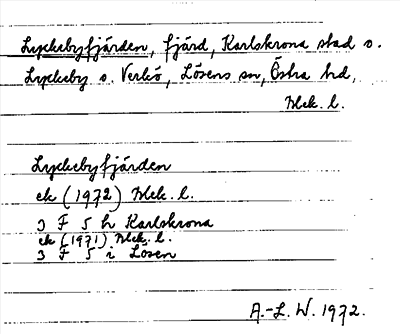 Lyckebyfjärden, fjärd, Karlskrona stad o.
Lyckeby o. Verkö, Lösens sn, Östra hd,
Blek. l.
Lyckebyfjärden
ek (1972) Blek. l.
3 F 5 h Karlskrona
ek (1971) Blek. l.
3 F 5 i Lösen
A.-L. W. 1972.